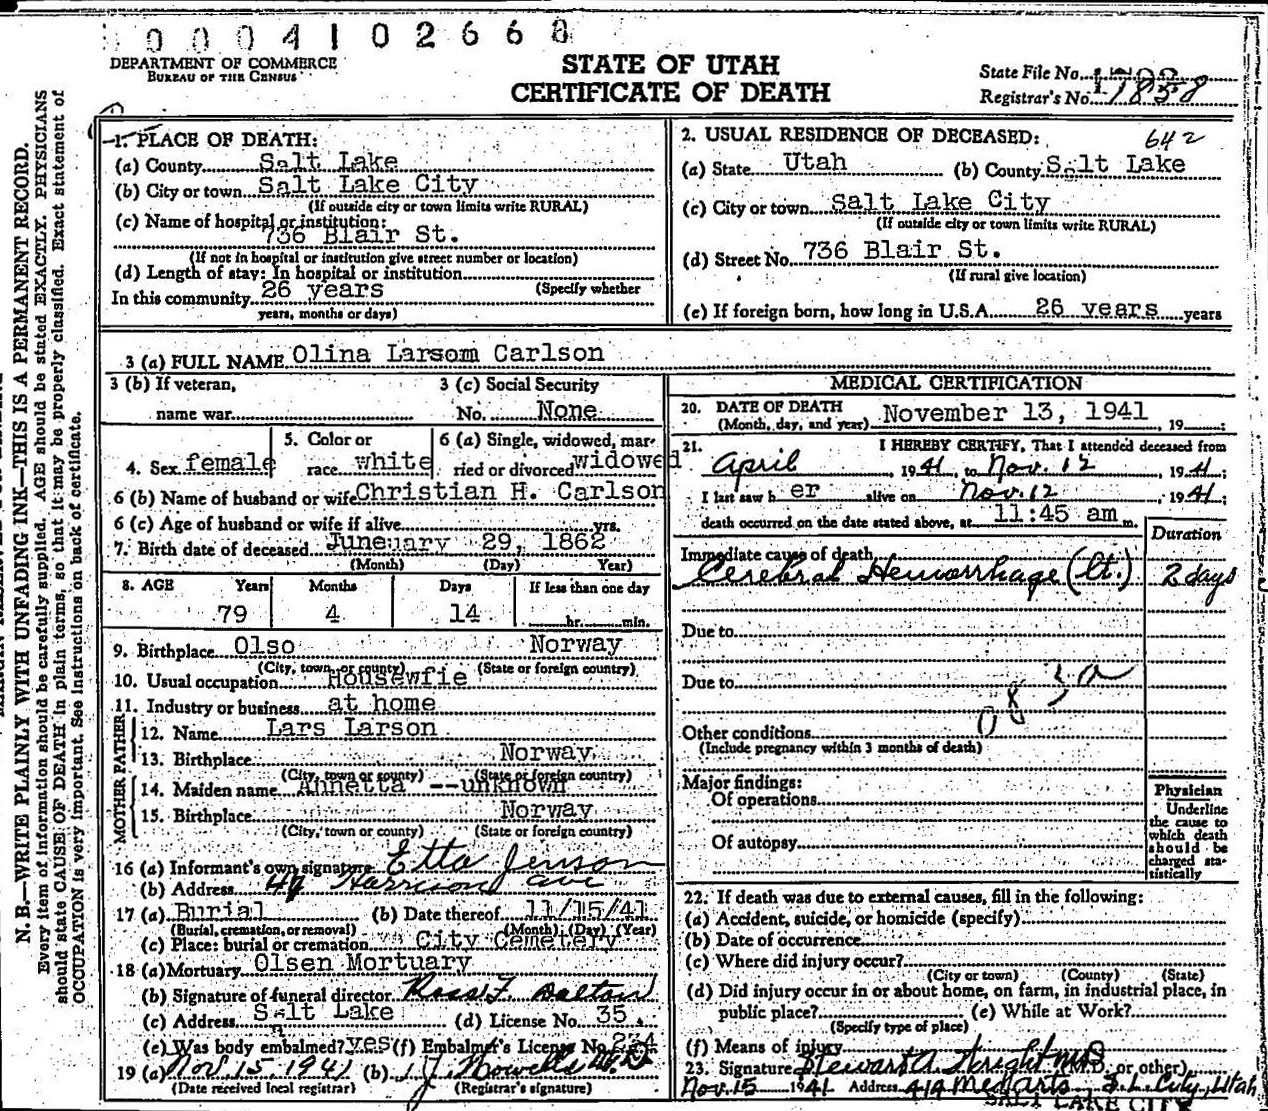 0004102668
DEPARTMENT OF COMMERCE
BUREAU OF THE CENSUS
STATE OF UTAH
CERTIFICATE OF DEATH
State File No.
Registrar's No. 1838
N. B.—WRITE PLAINLY WITH UNFADING INK—THIS IS A PERMANENT RECORD.
Every item of information should be carefully supplied. AGE should be stated EXACTLY. PHYSICIANS
should state CAUSE OF DEATH in plain terms, so that it may be properly classified. Exact statement of
OCCUPATION is very important. See instructions on back of certificate.
1. PLACE OF DEATH:
(a) County Salt Lake
(b) City or town Salt Lake City
(If outside city or town limits write RURAL)
(c) Name of hospital or institution:
736 Blair St.
(If not in hospital or institution give street number or location)
(d) Length of stay: In hospital or institution
(Specify whether
In this community 26 years
years, months or days)
2. USUAL RESIDENCE OF DECEASED: 642
(a) State Utah (b) County Salt Lake
(c) City or town Salt Lake City
(If outside city or town limits write RURAL)
(d) Street No. 736 Blair St.
(If rural give location)
(e) If foreign born, how long in U.S.A. 26 years years
3 (a) FULL NAME Olina Larsom Carlson
3 (b) If veteran,
name war
3 (c) Social Security
No. None
4. Sex female
5. Color or
race white
6 (a) Single, widowed, mar-
ried or divorced widowed
6 (b) Name of husband or wife Christian H. Carlson
6 (c) Age of husband or wife if alive yrs.
7. Birth date of deceased Juneuary 29, 1862
(Month) (Day) Year)
8. AGE Years Months Days If less than one day
79 4 14 hr. min.
9. Birthplace Olso Norway
(City, town or county) (State or foreign country)
10. Usual occupation Housewfie
11. Industry or business at home
FATHER
12. Name Lars Larson
13. Birthplace Norway
(City, town or county) (State or foreign country)
MOTHER
14. Maiden name Annetta --unknown
15. Birthplace Norway
(City, town or county) (State or foreign country)
16 (a) Informant's own signature Etta Jenson
(b) Address 49 Harrison ave
17 (a) Burial (b) Date thereof 11/15/41
(Burial, cremation, or removal) (Month) (Day) (Year)
(c) Place: burial or cremation City Cemetery
18 (a) Mortuary Olsen Mortuary
(b) Signature of funeral director Ross F. Dalton
(c) Address Salt Lake (d) License No. 35
(e) Was body embalmed? yes (f) Embalmer's License No. 234
19 (a) Nov. 15, 1941 (b) J. Howells M.D.
(Date received local registrar) (Registrar's signature)
MEDICAL CERTIFICATION
20. DATE OF DEATH November 13, 1941, 19 ;
(Month, day, and year)
21. I HEREBY CERTIFY, That I attended deceased from
April, 1941, to Nov. 12, 1941;
I last saw h er alive on Nov. 12, 1941;
death occurred on the date stated above, at 11:45 am m.
Duration
Immediate cause of death
Cerebral Hemorrhage (lt.) 2 days
Due to
Due to
Other conditions
(Include pregnancy within 3 months of death)
Major findings:
Of operations
Of autopsy
Physician
Underline
the cause to
which death
should be
charged sta-
tistically
22. If death was due to external causes, fill in the following:
(a) Accident, suicide, or homicide (specify)
(b) Date of occurrence
(c) Where did injury occur?
(City or town) (County) (State)
(d) Did injury occur in or about home, on farm, in industrial place, in
public place? (e) While at Work?
(Specify type of place)
(f) Means of injury
23. Signature Stewart A. Wright MD (M.D. or other)
Nov. 15 1941 Address 414 Med Arts S. L. City, Utah
SALT LAKE CITY